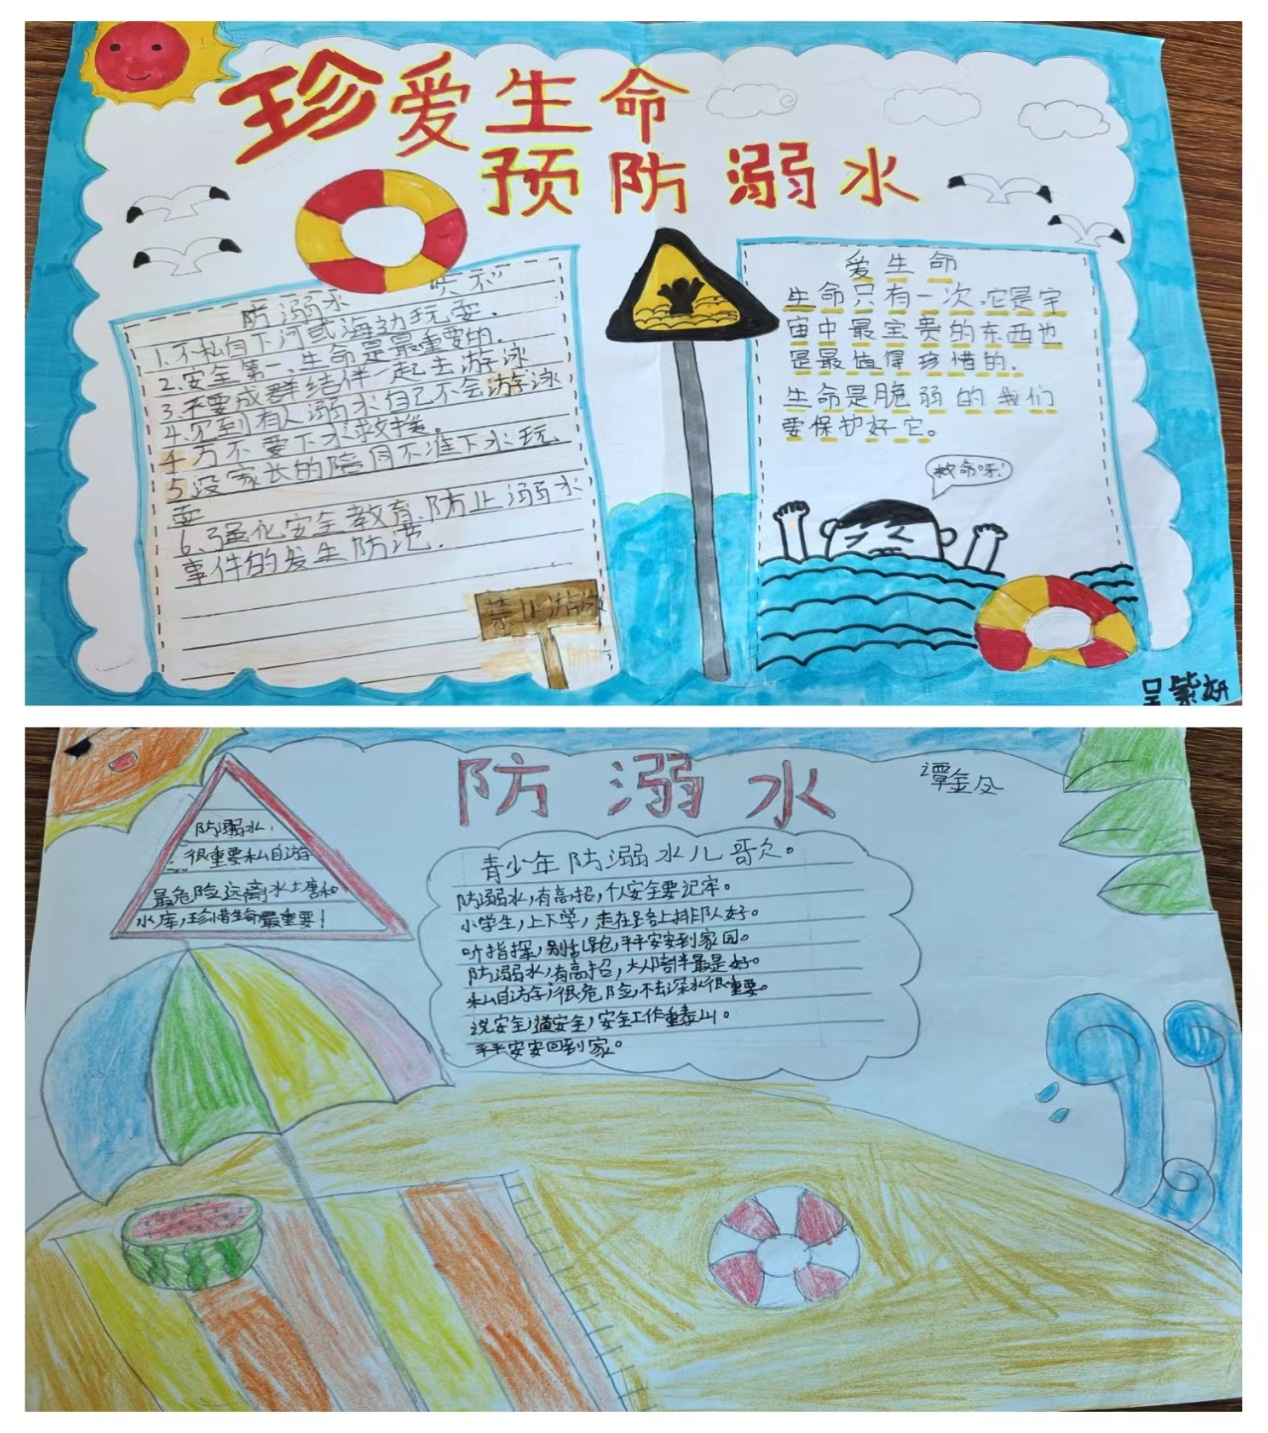 珍爱生命
预防溺水
防溺水 "六不"
1.不私自下河或海边玩耍.
2.安全第一、生命是最重要的.
3.不要成群结伴一起去游泳
4.见到有人溺水自己不会游泳
千万不要下水救援。
5没家长的陪同不准下水玩
耍
6.强化安全教育,防止溺水
事件的发生防范.
禁止游泳
爱生命
生命只有一次,它是宇
宙中最宝贵的东西也
是最值得珍惜的.
生命是脆弱的我们
要保护好它。
救命呀!
吴紫妍
防溺水
谭金
防溺水:
很重要私自游
最危险远离水塘和
水库,珍惜生命最重要!
青少年防溺水儿歌
防溺水,有高招,个人安全要记牢。
小学生,上下学,走在路上排队好。
听指挥,别乱跑,平平安安到家回。
防溺水,有高招,大人陪伴最是好。
私自游泳很危险,不去深水很重要。
说安全,道安全,安全工作重泰山。
平平安安回到家。